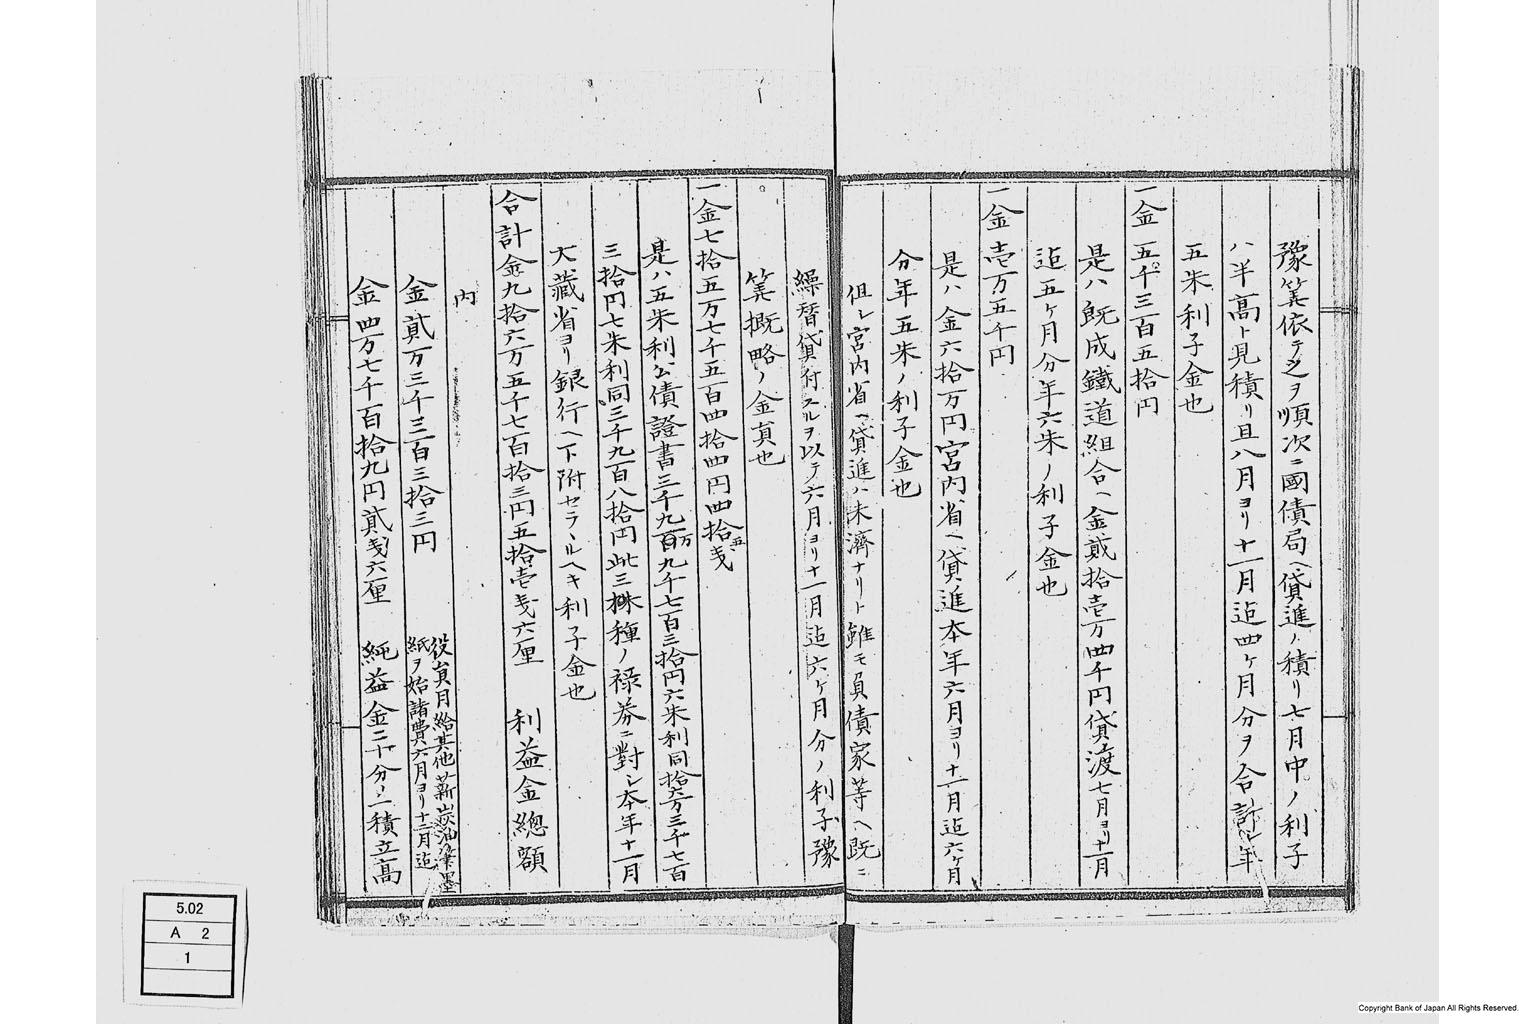 豫算依テ之ヲ順次ニ國債局ヘ貸進ノ積リ七月中ノ利子
ハ半高ト見積リ且八月ヨリ十一月迠四ヶ月分ヲ合計シ年
五朱利子金也
一金五千三百五拾円
是ハ既成鐵道組合ヘ金貳拾壱万四千円貸渡七月ヨリ十一月
迠五ヶ月分年六朱ノ利子金也
一金壱万五千円
是ハ金六拾万円宮内省ヘ貸進本年六月ヨリ十一月迠六ヶ月
分年五朱ノ利子金也
但シ宮内省ヘ貸進ハ未濟ナリト雖モ負債家等ヘ既ニ
繰替貸付スルヲ以テ六月ヨリ十一月迠六ヶ月分ノ利子豫
算概略ノ金員也
一金七拾五万七千五百四拾四円四拾五戔
是ハ五朱利公債證書三千九百万九千七百三拾円六朱利同拾六万三千七百
三拾円七朱利同三千九百八拾円此三株種ノ禄券ニ對シ本年十一月
大藏省ヨリ銀行ヘ下附セラルヘキ利子金也
合計金九拾六万五千七百拾三円五拾壱戔六厘 利益金總額
内
金貳万三千三百三拾三円 役員月給其他薪炭油筆墨
紙ヲ始諸費六月ヨリ十二月迠
金四万七千百拾九円貳戔六厘 純益金二十分ノ一積立高
5.02
A 2
1
Copyright Bank of Japan All Rights Reserved.